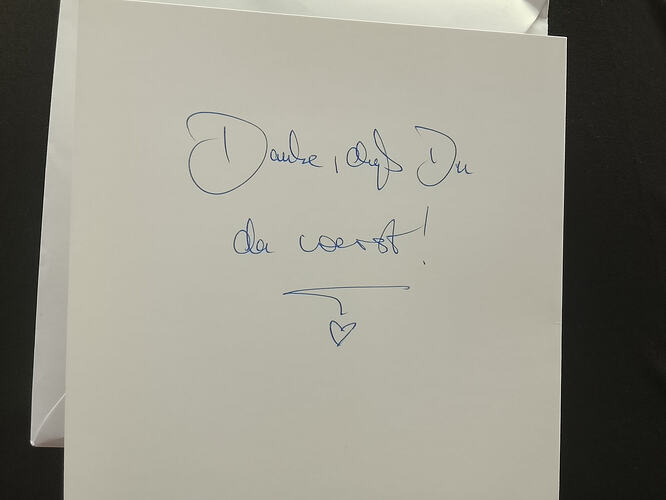 Danke, daß Du
da warst!